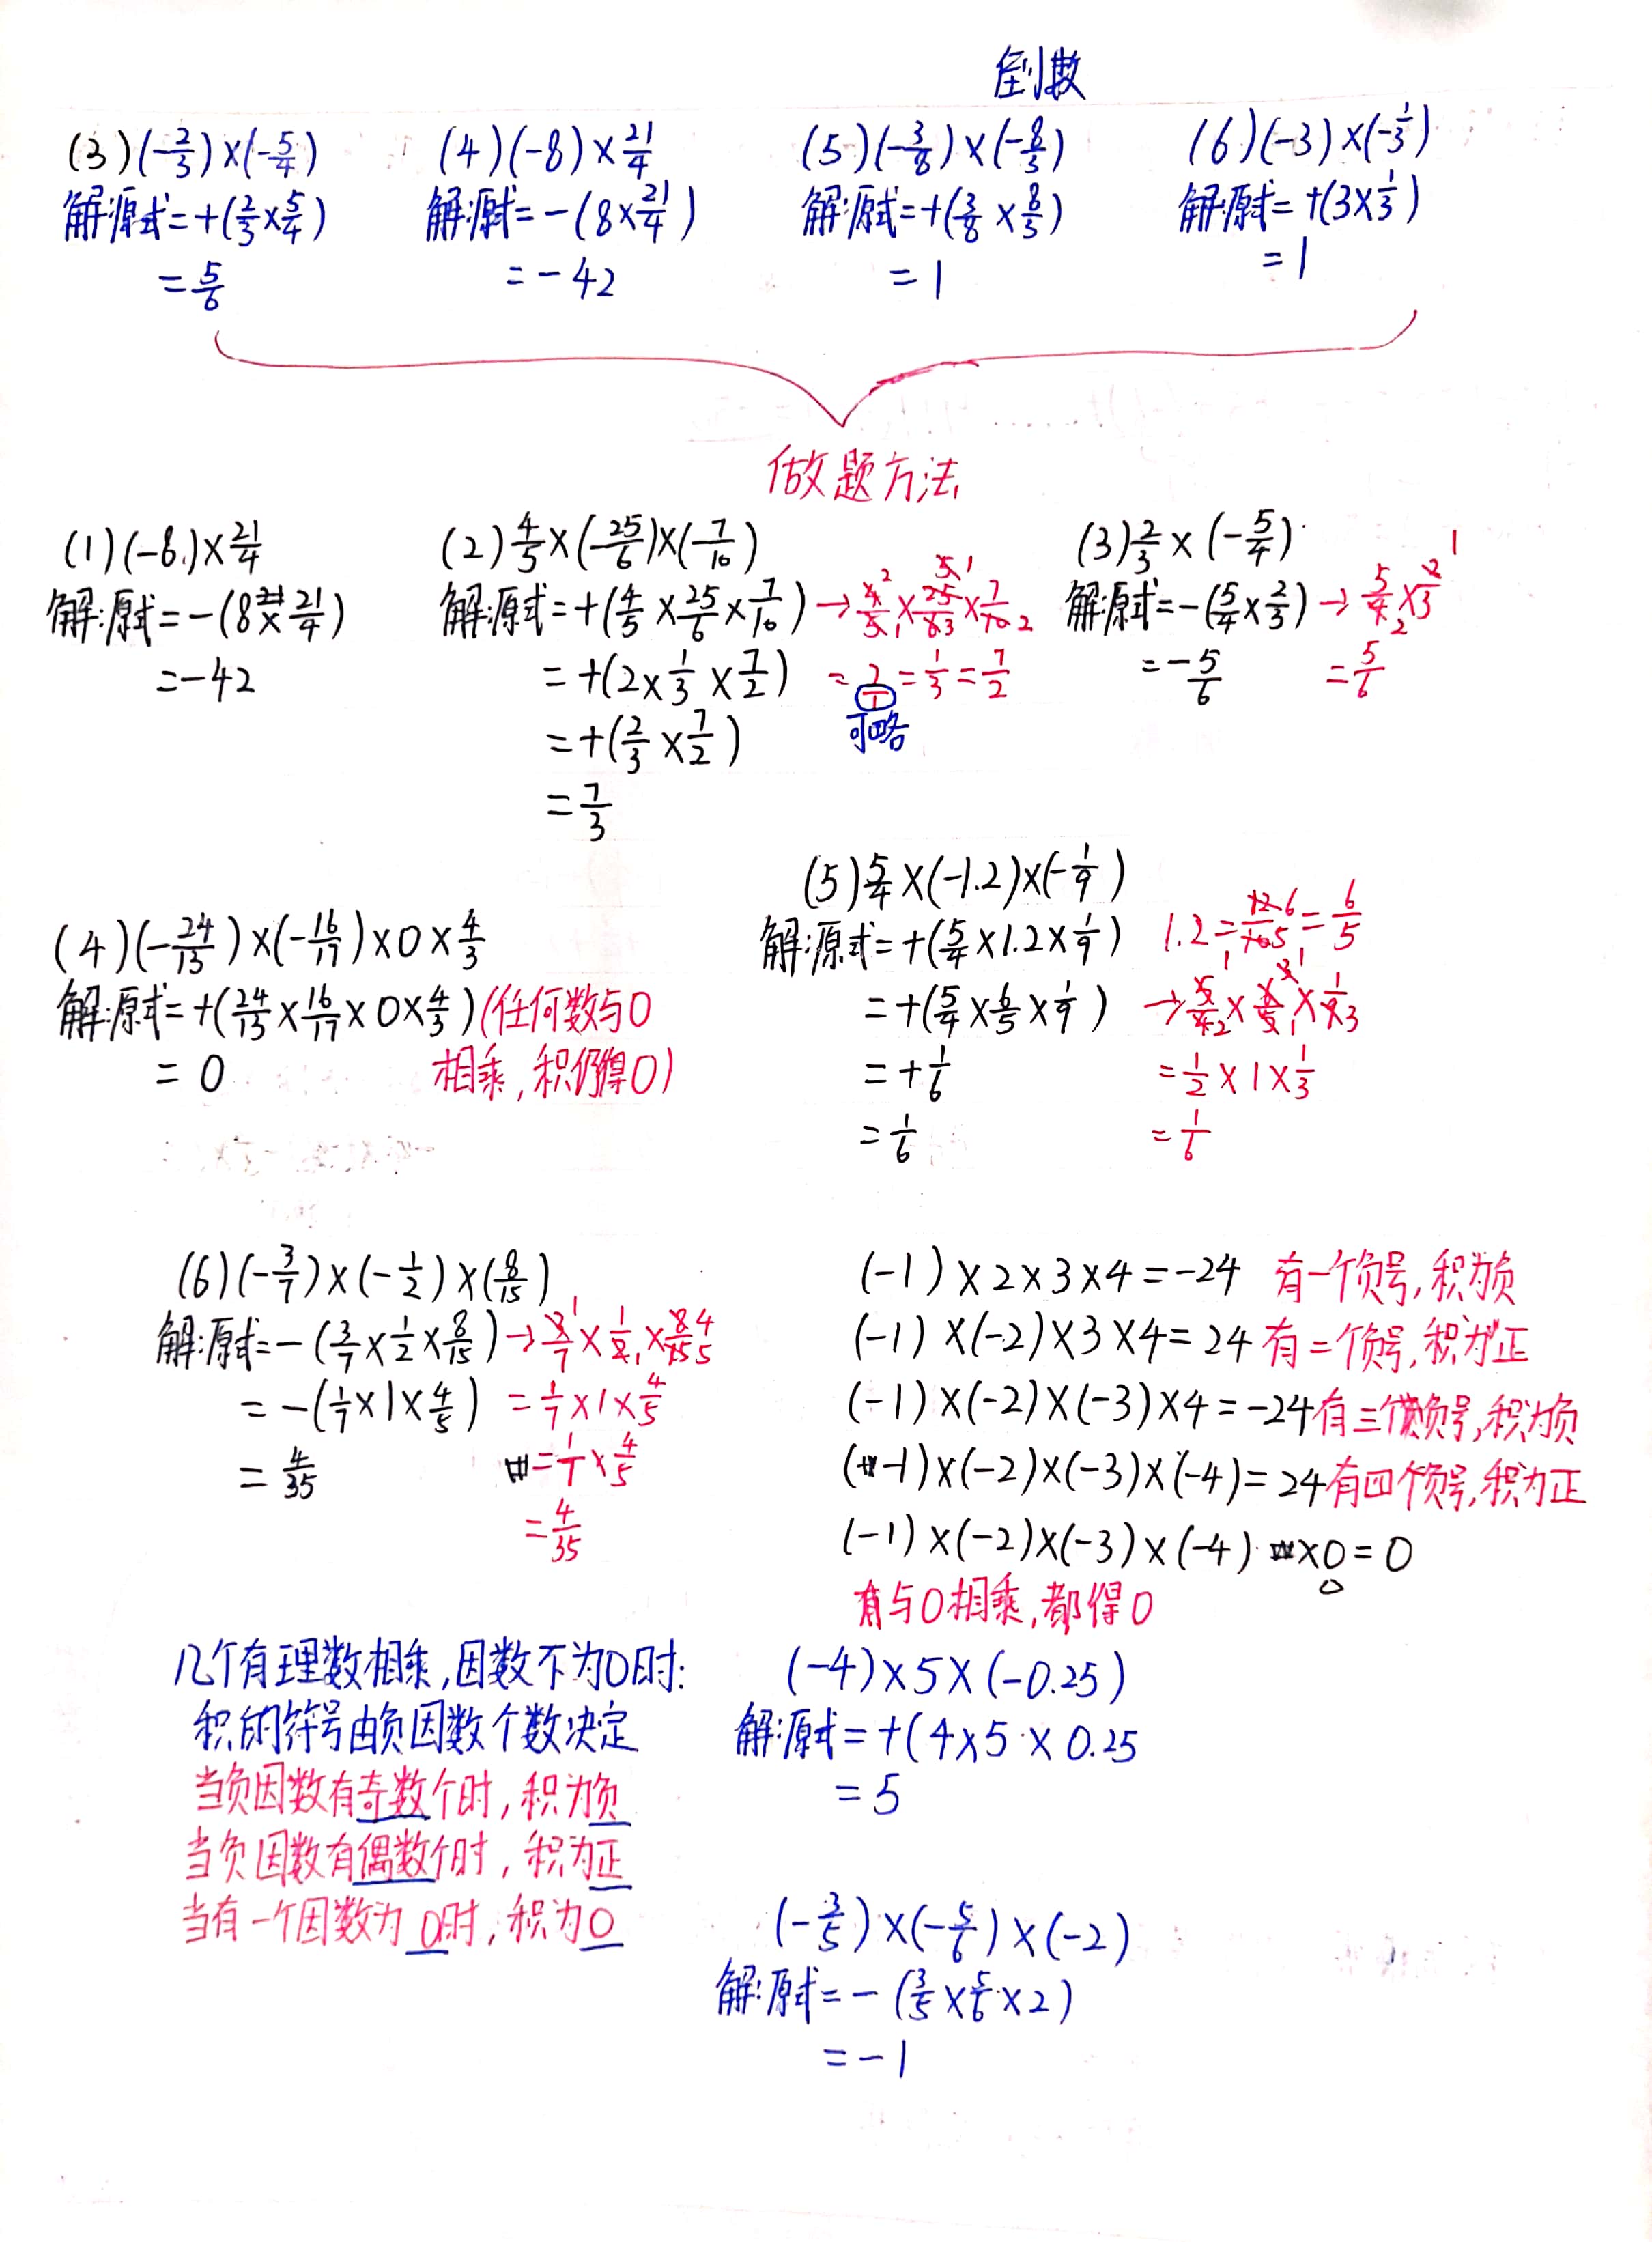 倒数
(3)(-2/3)×(-5/4)
解:原式=+(2/3×5/4)
=5/6
(4)(-8)×21/4
解:原式=-(8×21/4)
=-42
(5)(-3/8)×(-8/3)
解:原式=+(3/8×8/3)
=1
(6)(-3)×(-1/3)
解:原式=+(3×1/3)
=1
做题方法
(1)(-8)×21/4
解:原式=-(8×21/4)
=-42
(2)4/5×(-25/6)×(-7/10)
解:原式=+(4/5×25/6×7/10)→4/5×25/6×7/10
=+(2×1/3×7/2) =2/1=1/3=7/2
可略
=+(2/3×7/2)
=7/3
(3)2/3×(-5/4)
解:原式=-(5/4×2/3)→5/4×2/3
=-5/6 =5/6
(4)(-24/13)×(-16/17)×0×4/3
解:原式=+(24/13×16/17×0×4/3)(任何数与0
=0 相乘,积仍得0)
(5)5/4×(-1.2)×(-1/9)
解:原式=+(5/4×1.2×1/9) 1.2=12/10=6/5
=+(5/4×6/5×1/9) →5/4×6/5×1/9
=+1/6 =1/2×1×1/3
=1/6 =1/6
(6)(-3/7)×(-1/2)×(8/15)
解:原式=-(3/7×1/2×8/15)→3/7×1/2×8/15
=-(1/7×1×4/5) =1/7×1×4/5
=4/35 =1/7×4/5
=4/35
(-1)×2×3×4=-24 有一个负号,积为负
(-1)×(-2)×3×4=24 有二个负号,积为正
(-1)×(-2)×(-3)×4=-24有三个负号,积为负
(-1)×(-2)×(-3)×(-4)=24有四个负号,积为正
(-1)×(-2)×(-3)×(-4)×0=0
有与0相乘,都得0
几个有理数相乘,因数不为0时:
积的符号由负因数个数决定
当负因数有奇数个时,积为负
当负因数有偶数个时,积为正
当有一个因数为0时,积为0
(-4)×5×(-0.25)
解:原式=+(4×5×0.25
=5
(-3/5)×(-5/6)×(-2)
解:原式=-(3/5×5/6×2)
=-1